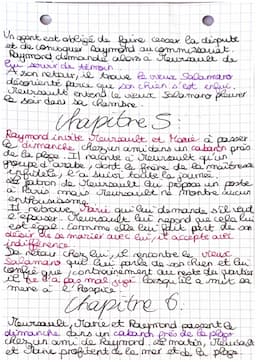 Un agent est obligé de faire cesser la dispute
et de convoquer Raymond au commissariat.
Raymond demande alors à Meursault de
lui servir de témoin.
A son retour, il trouve le vieux Salamano
désorienté parce que son chien s'est enfui.
Meursault entend le vieux Salamano pleurer
le soir dans sa chambre.
Chapitre 5:
Raymond invite Meursault et Marie à passer
le dimanche chez un ami dans un cabanon près
de la plage. Il raconte à Meursault qu'un
groupe d'arabe, dont le frère de la maîtresse
infidèle, l'a suivi toute la journée.
Le patron de Meursault lui propose un poste
à Paris mais Meursault ne montre aucun
enthousiasme.
Il retrouve Marie qui lui demande s'il veut
l'épouser. Meursault lui répond que cela lui
est égal. Comme elle lui fait part de son
désir de se marier avec lui, il accepte avec
indifférence.
De retour chez lui, il rencontre le vieux
Salamano qui lui parle de son chien et lui
confie que, contrairement au reste du quartier
il ne l'a pas mal jugé lorsqu'il a mis sa
mère à l'hospice.
Chapitre 6:
Meursault, Marie et Raymond passent le
dimanche dans un cabanon près de la plage
chez un ami de Raymond. Le matin, Meursault
et Marie profitent de la mer et de la plage